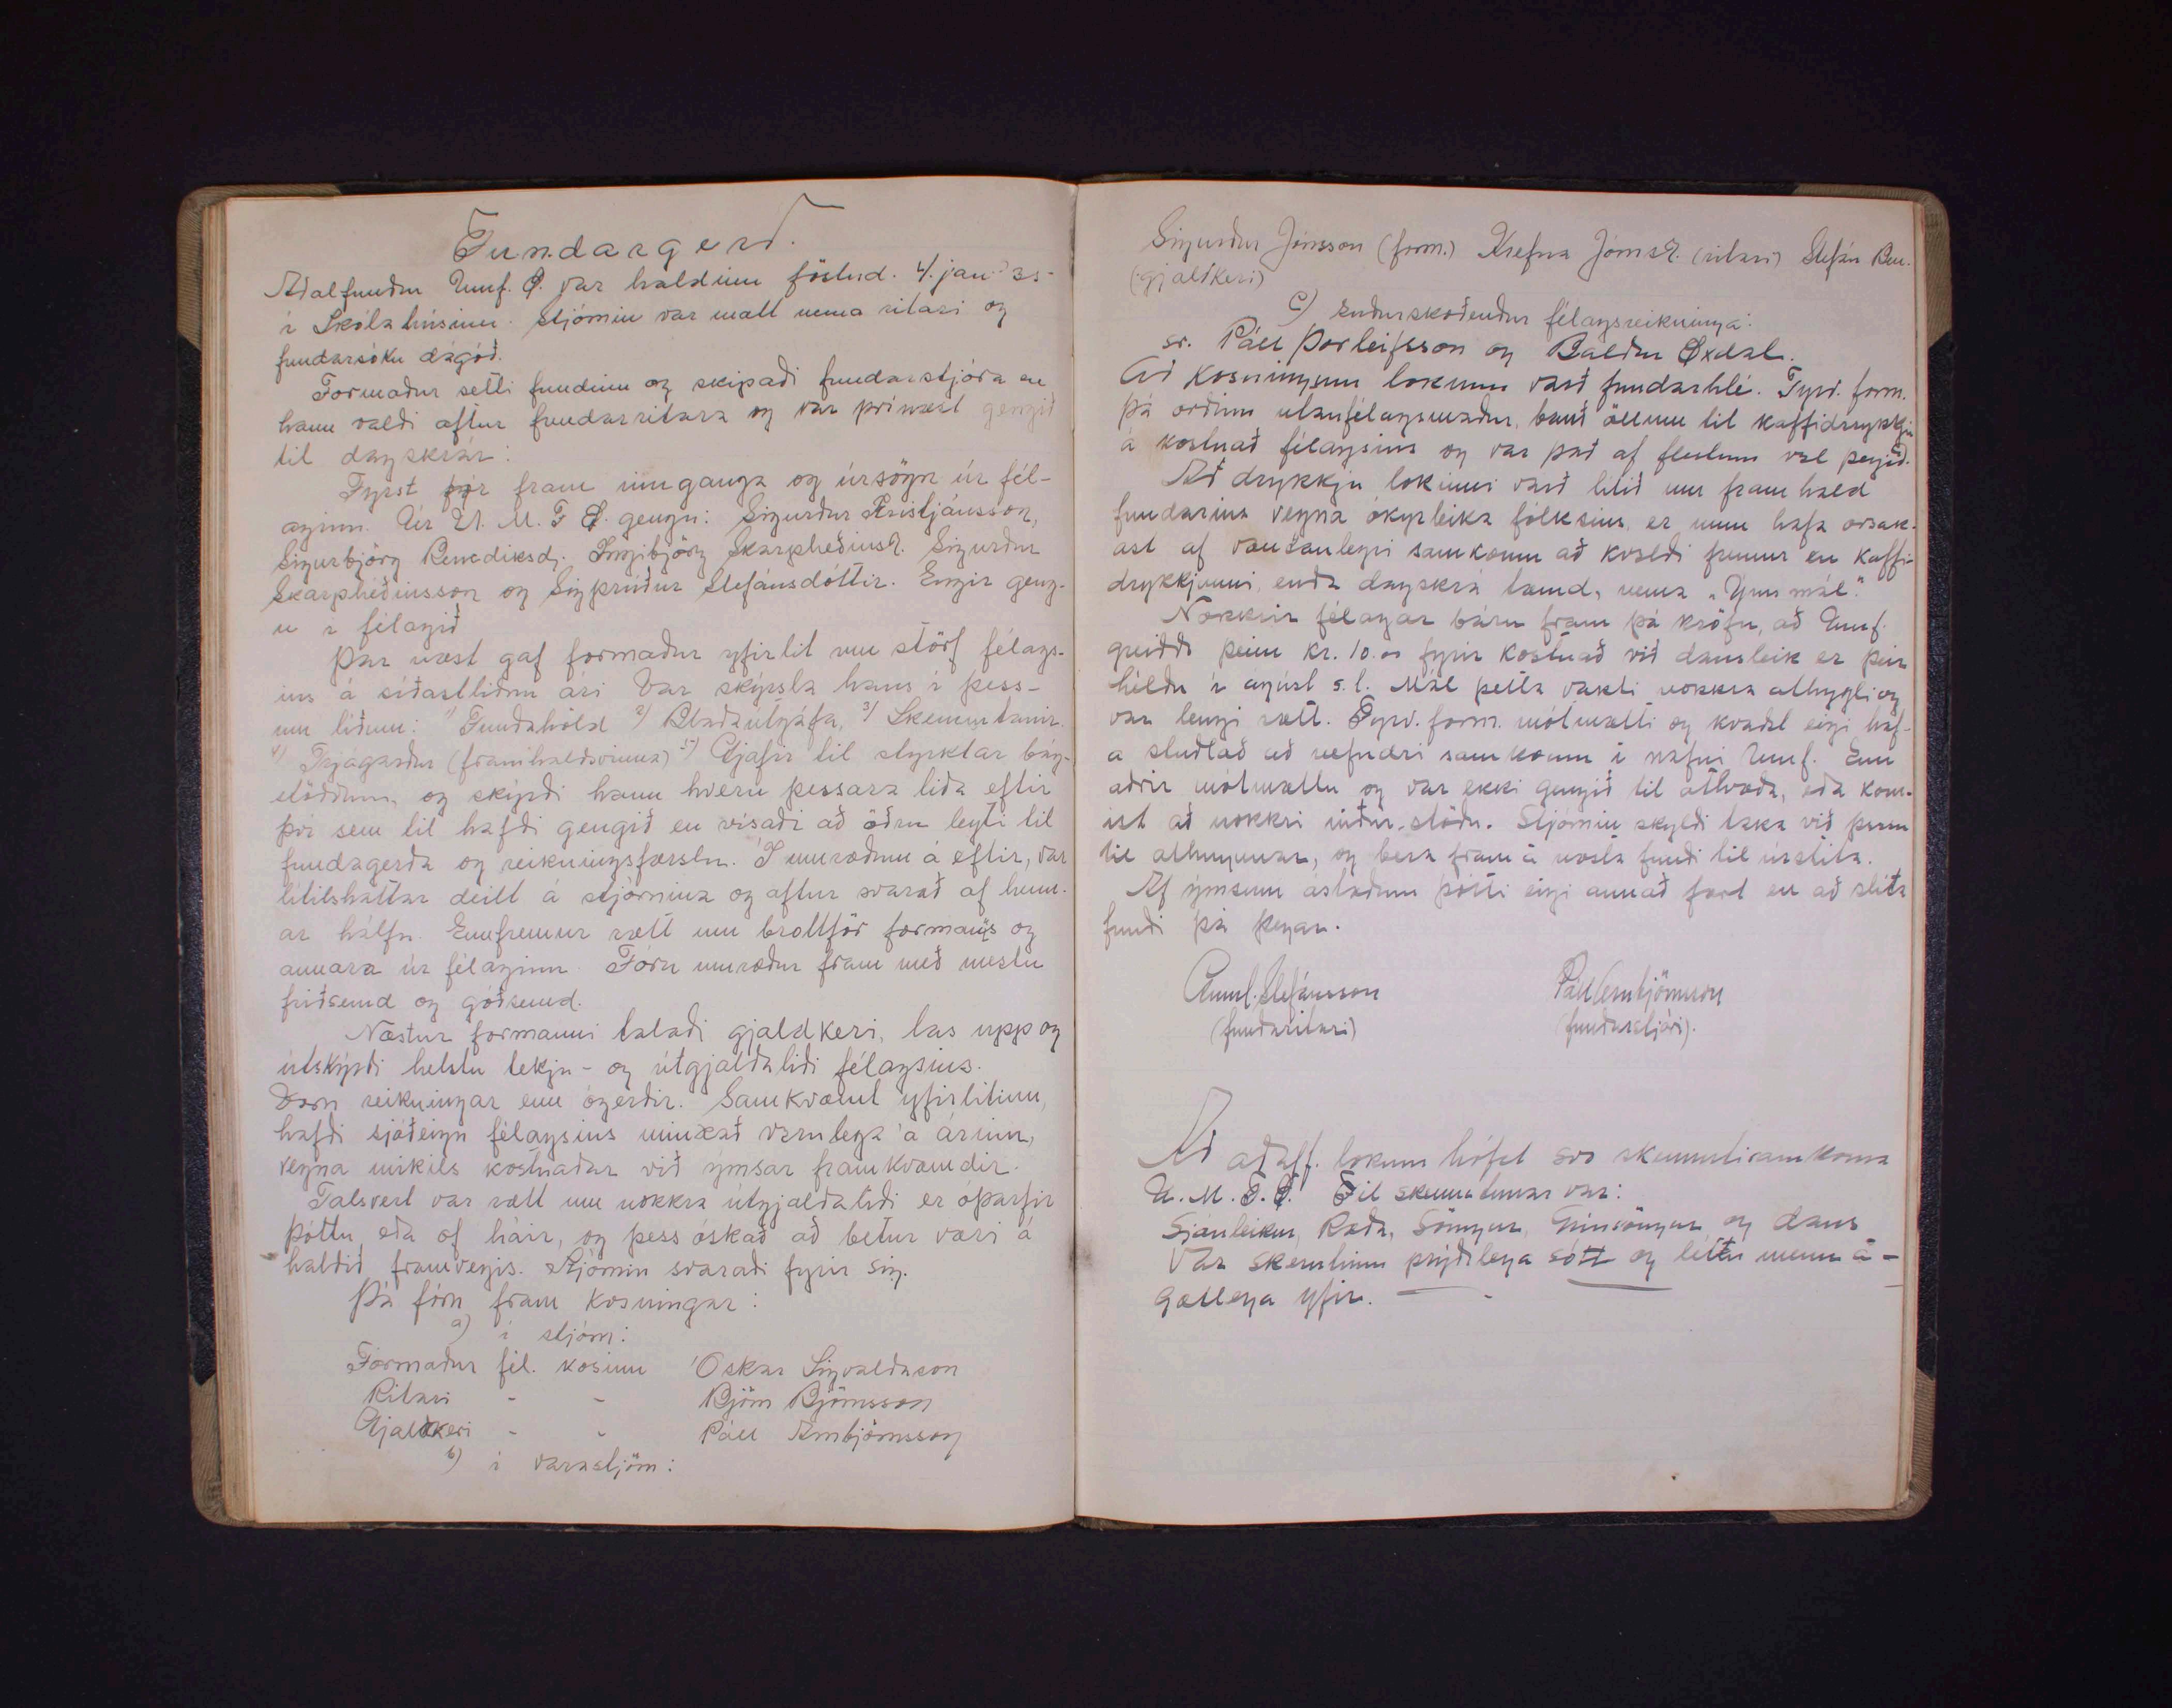 Fundargerð.
Aðalfundur Umf. Ö. var haldinn föstud. 4. jan. '35
í Skólahúsinu. Stjórnin var mætt nema ritari og
fundarsókn dágóð.
Formaður setti fundinn og skipaði fundarstjóra en
hann valdi aftur fundarritara og var þvínæst gengið
til dagskrár:
Fyrst fór fram innganga og úrsögn úr fél-
aginu. Úr U. M. F. Ö. gengu: Sigurður Kristjánsson,
Sigurbjörg Benediksd. Ingibjörg Skarphéðinsd. Sigurður
Skarphéðinsson og Sigþrúður Stefánsdóttir. Engir geng-
u í félagið
Þar næst gaf formaður yfirlit um störf félags-
ins á síðastliðnu ári Var skýrsla hans í þess-
um liðum: 1) Fundahöld 2) Blaðaútgáfa, 3) Skemmtanir.
4) Trjágarður (framhaldsvinna) 5) Gjafir til styrktar bág-
stöddum, og skýrði hann hvern þessara liða eftir
því sem til hafði gengið en vísaði að öðru leyti til
fundagerða og reikningsfærslu. Í umræðum á eftir, var
lítilsháttar deilt á stjórnina og aftur svarað af henn-
ar hálfu. Ennfremur rætt um brottför formanns og
annara úr félaginu. Fóru umræður fram með mestu
friðsemd og góðsemd.
Næstur formanni talaði gjaldkeri, las upp og
útskýrði helstu tekju- og útgjaldaliði félagsins.
Voru reikningar enn ógerðir. Samkvæmt yfirlitinu,
hafði sjóðeign félagsins minkað verulega á árinu,
vegna mikils kostnaðar við ýmsar framkvæmdir.
Talsvert var rætt um nokkra útgjaldaliði er óþarfir
þóttu, eða of háir, og þess óskað að betur væri á
haldið framvegis. Stjórnin svaraði fyrir sig.
Þá fóru fram kosningar:
a) í stjórn:
Formaður fél. kosinn Óskar Sigvaldason
Ritari - - Björn Björnsson
Gjaldkeri - - Páll Arnbjörnsson
b) í varastjórn:
Sigurður Jónsson (form.) Hrefna Jónsd. (ritari) Stefán Ben.
(gjaldkeri)
c) Endurskoðendur félagsreikninga:
sr. Páll Þorleifsson og Baldur Öxdal.
Að kosningum loknum varð fundarhlé. Fyrv. form.
þá orðinn utanfélagsmaður, bauð öllum til kaffidrykkju
á kostnað félagsins og var það af flestum vel þegið.
Að drykkju lokinni varð lítið um framhald
fundarins vegna ókyrleika fólksins, er mun hafa orsak-
ast af væntanlegri samkomu að kveldi fremur en kaffi-
drykkjunni, enda dagskrá tæmd, nema „Ýms mál".
Nokkrir félagar báru fram þá kröfu, að Umf.
greiddi þeim kr. 10.oo fyrir kostnað við dansleik er þeir
héldu í ágúst s.l. Mál þetta vakti nokkra athygli og
var lengi rætt. Fyrv. form. mótmælti og kvaðst eigi haf-
a stuðlað að nefndri samkomu í nafni Umf. Enn
aðrir mótmæltu og var ekki gengið til atkvæða, eða kom-
ist að nokkri niður-stöðu. Stjórnin skyldi taka við þessu
til athugunar, og bera fram á næsta fundi til úrslita.
Af ýmsum ástæðum þótti eigi annað fært en að slíta
fundi þá þegar.
Stefánsson Páll Arnbjörnsson
(fundarritari) (fundarstjóri).
Að aðalf. loknum hófst svo skemmtisamkoma
U. M. F. Ö. Til skemmtunar var:
Sjónleikur, Ræða, Söngur, Gamansöngur og dans
Var skemtunin prýðilega sótt og létu menn á-
gætlega yfir.